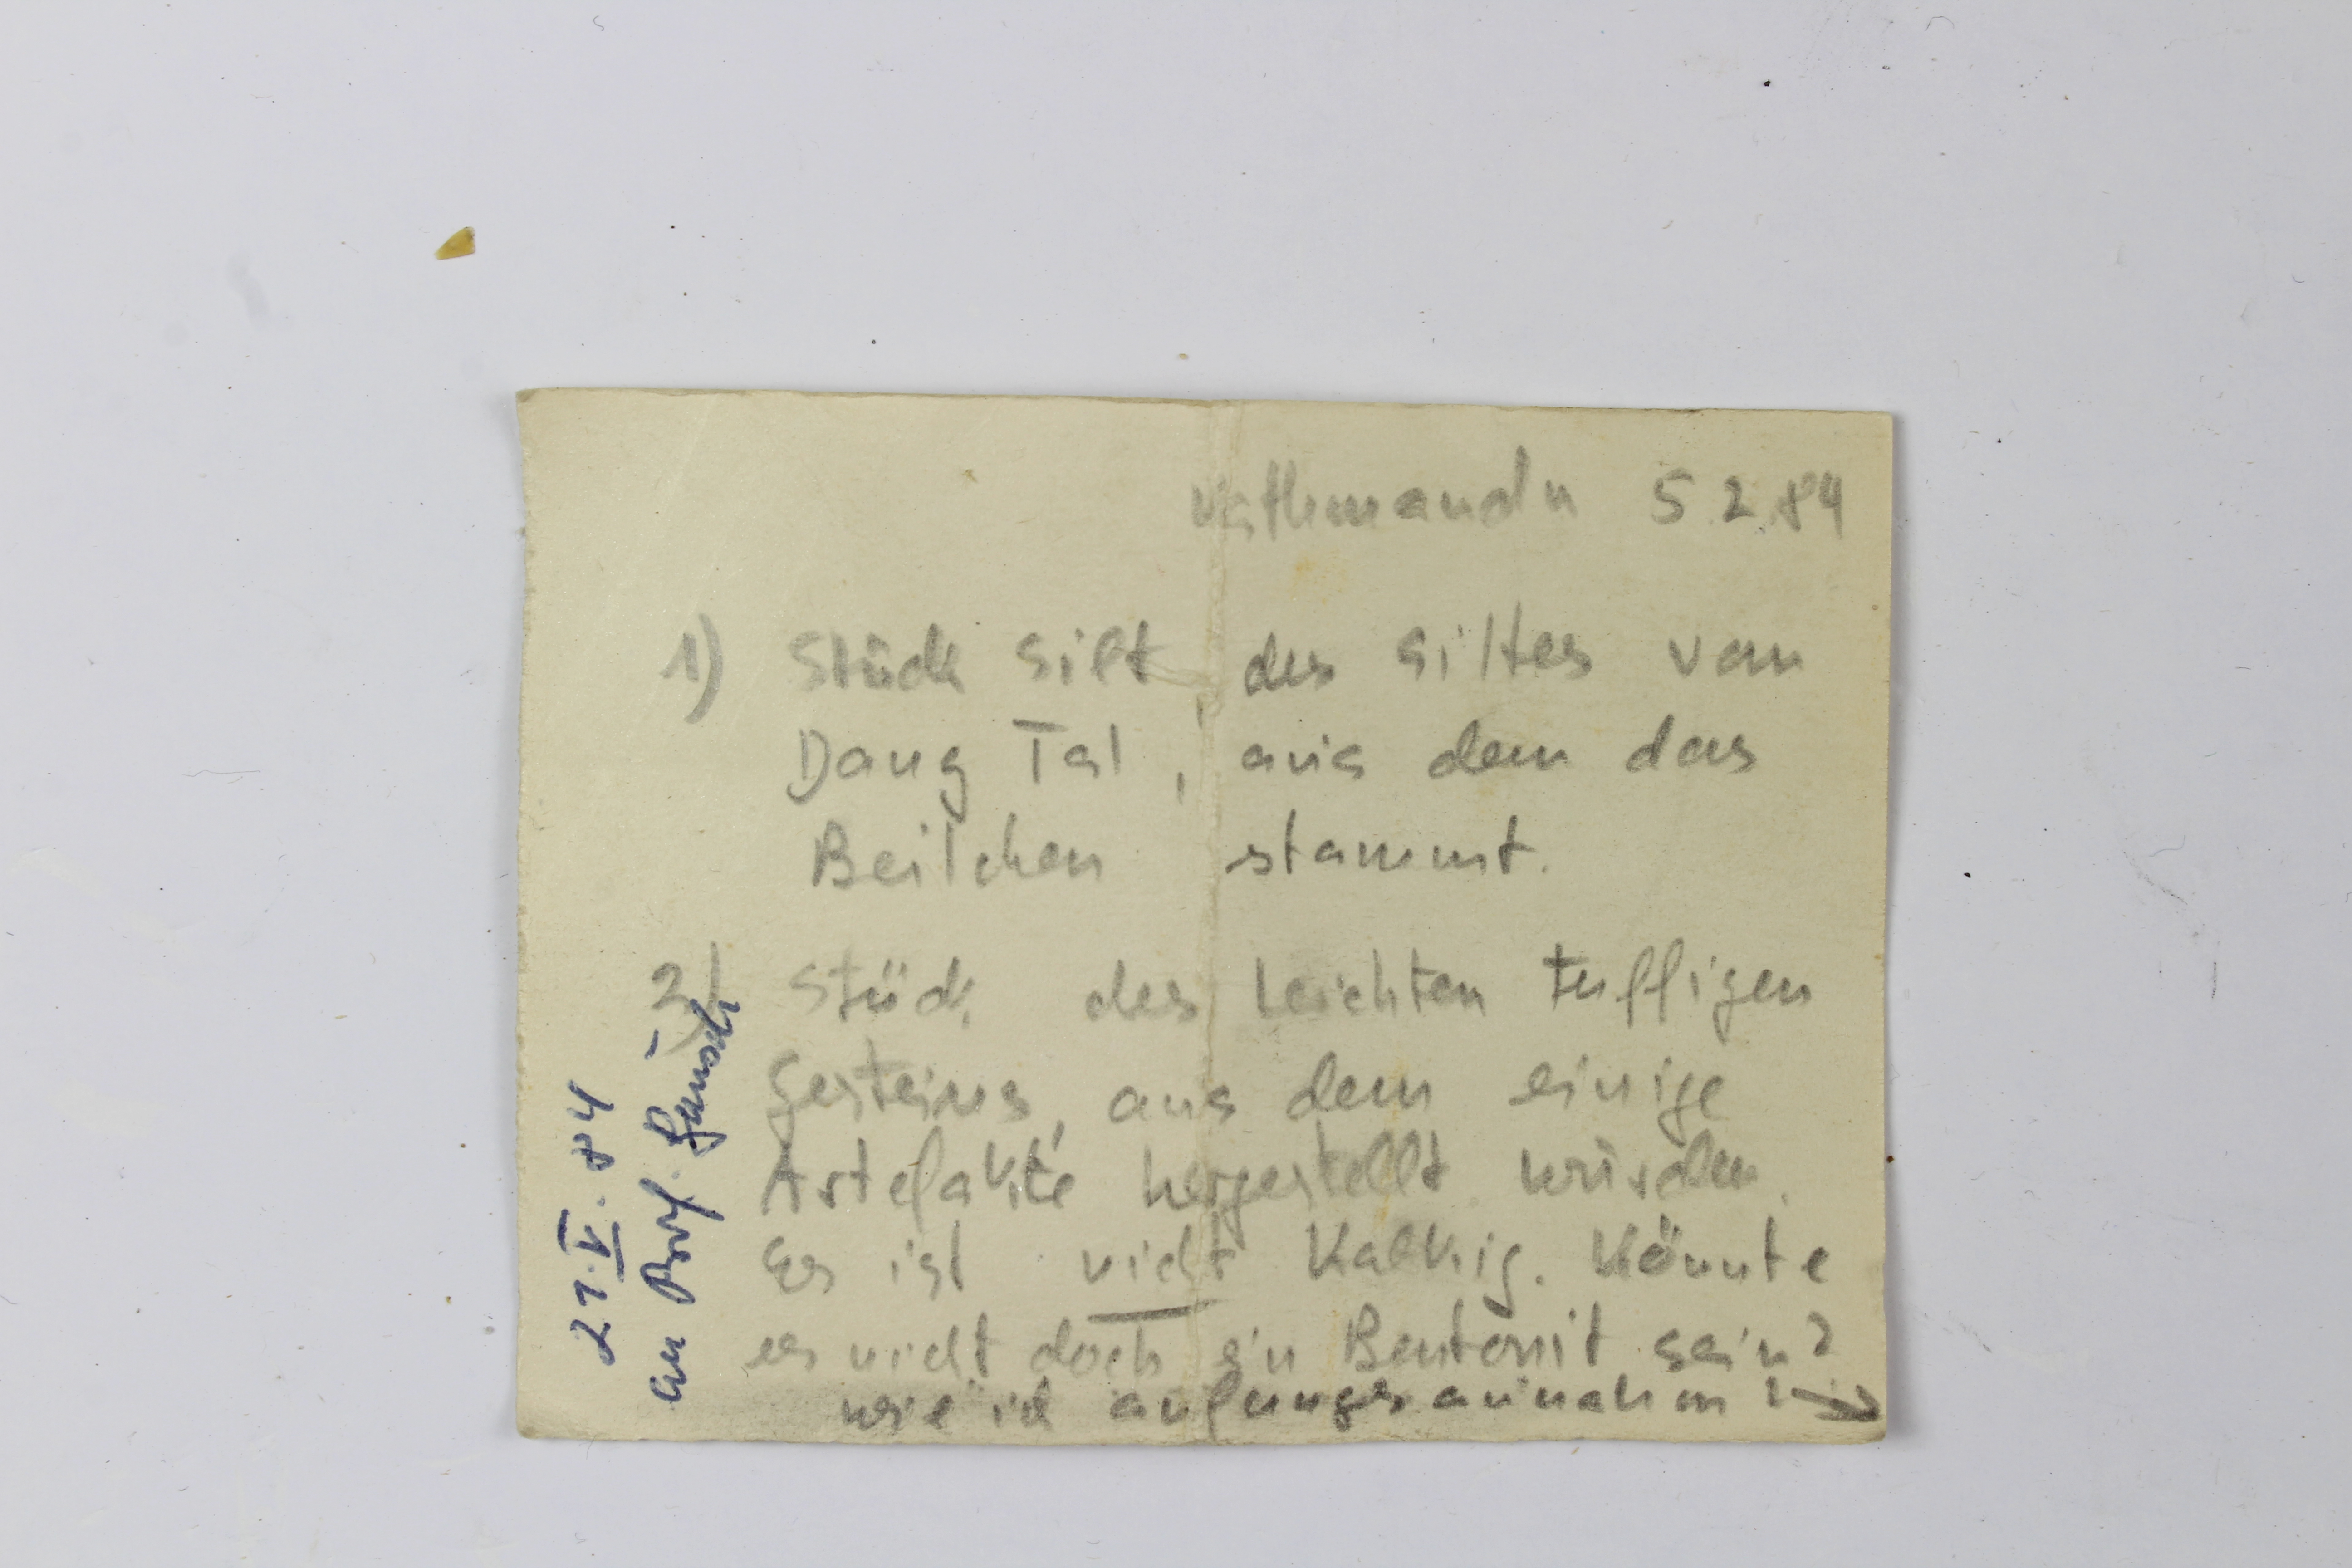 Kathmandu 5.2.84
1) Stück Silt des Siltes vom
Dang Tal, aus dem das
Beilchen stammt.
2) Stück des leichten tuffigen
Gesteins, aus dem einige
Artefakte hergestellt wurden.
Es ist nicht kalkig. Könnte
es nicht doch ein Bentonit sein?
wie ich anfangs annahm? →
21.V.84
an Prof.